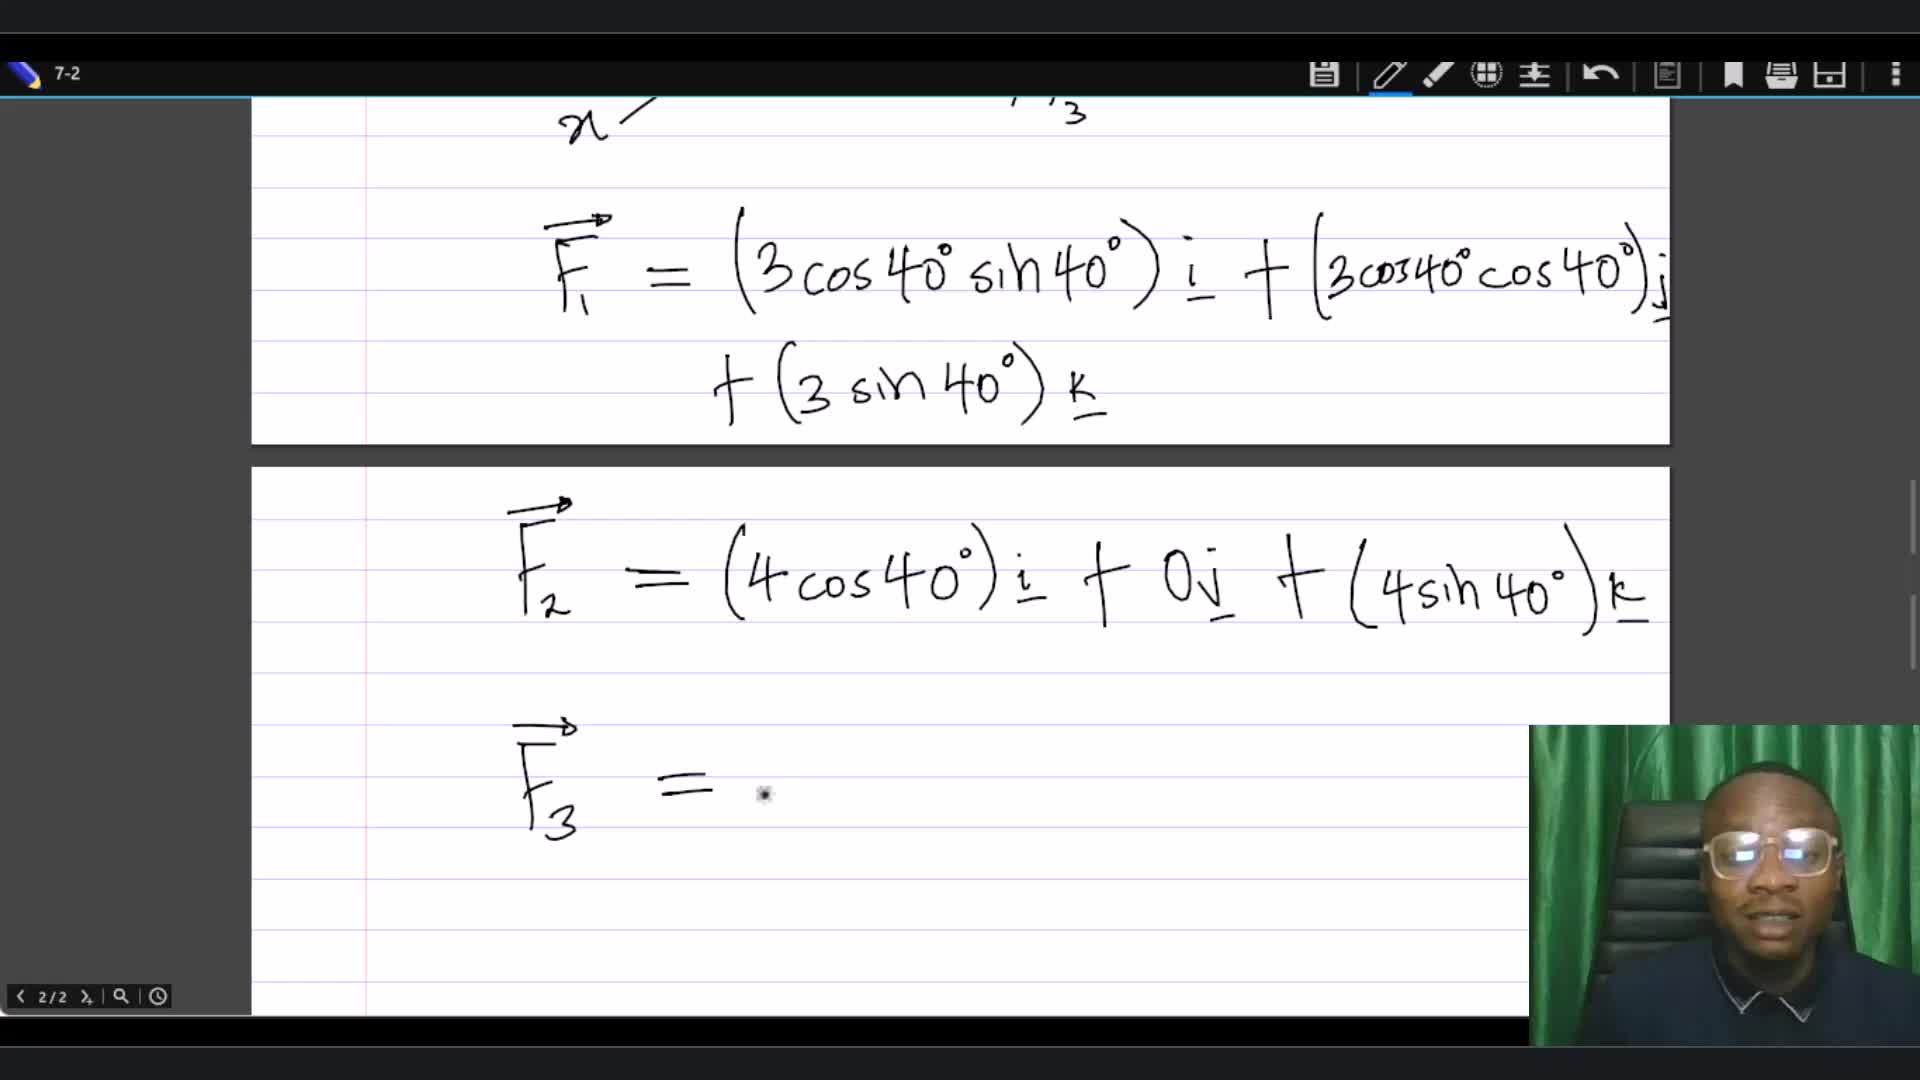 7-2
x
3
F₁ = (3cos40° sin40°) i + (3cos40° cos40°) j
+ (3 sin 40°) k
F₂ = (4cos40°) i + 0j + (4sin40°) k
F₃ =
2/2